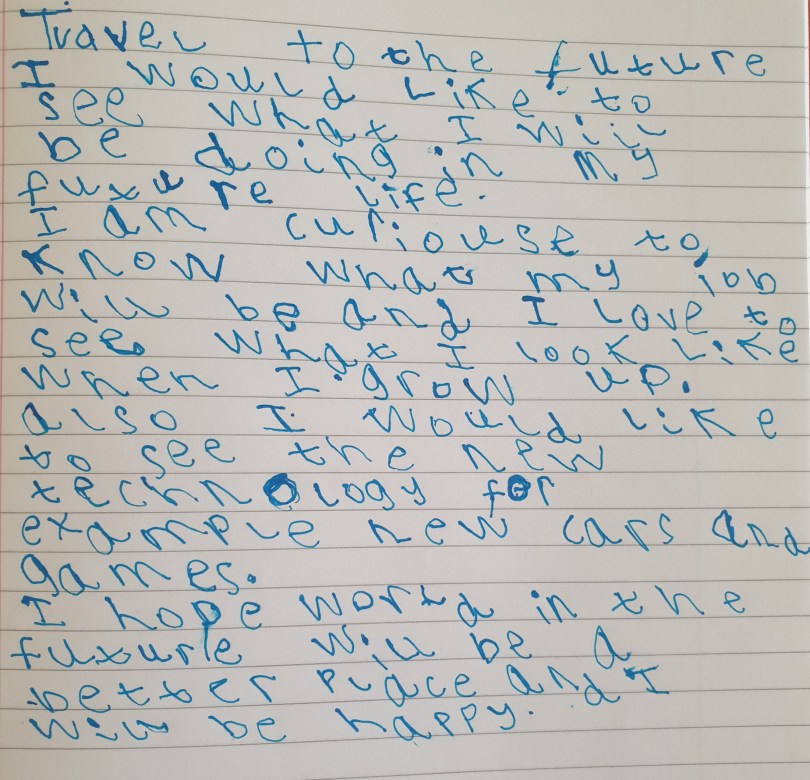 Travel to the future
I would like to
see what I will
be doing in my
future life.
I am curiouse to
know what my job
will be and I love to
see what I look like
when I grow up.
also I would like
to see the new
technology for
example new cars and
games.
I hope world in the
future will be a
better place and I
will be happy.